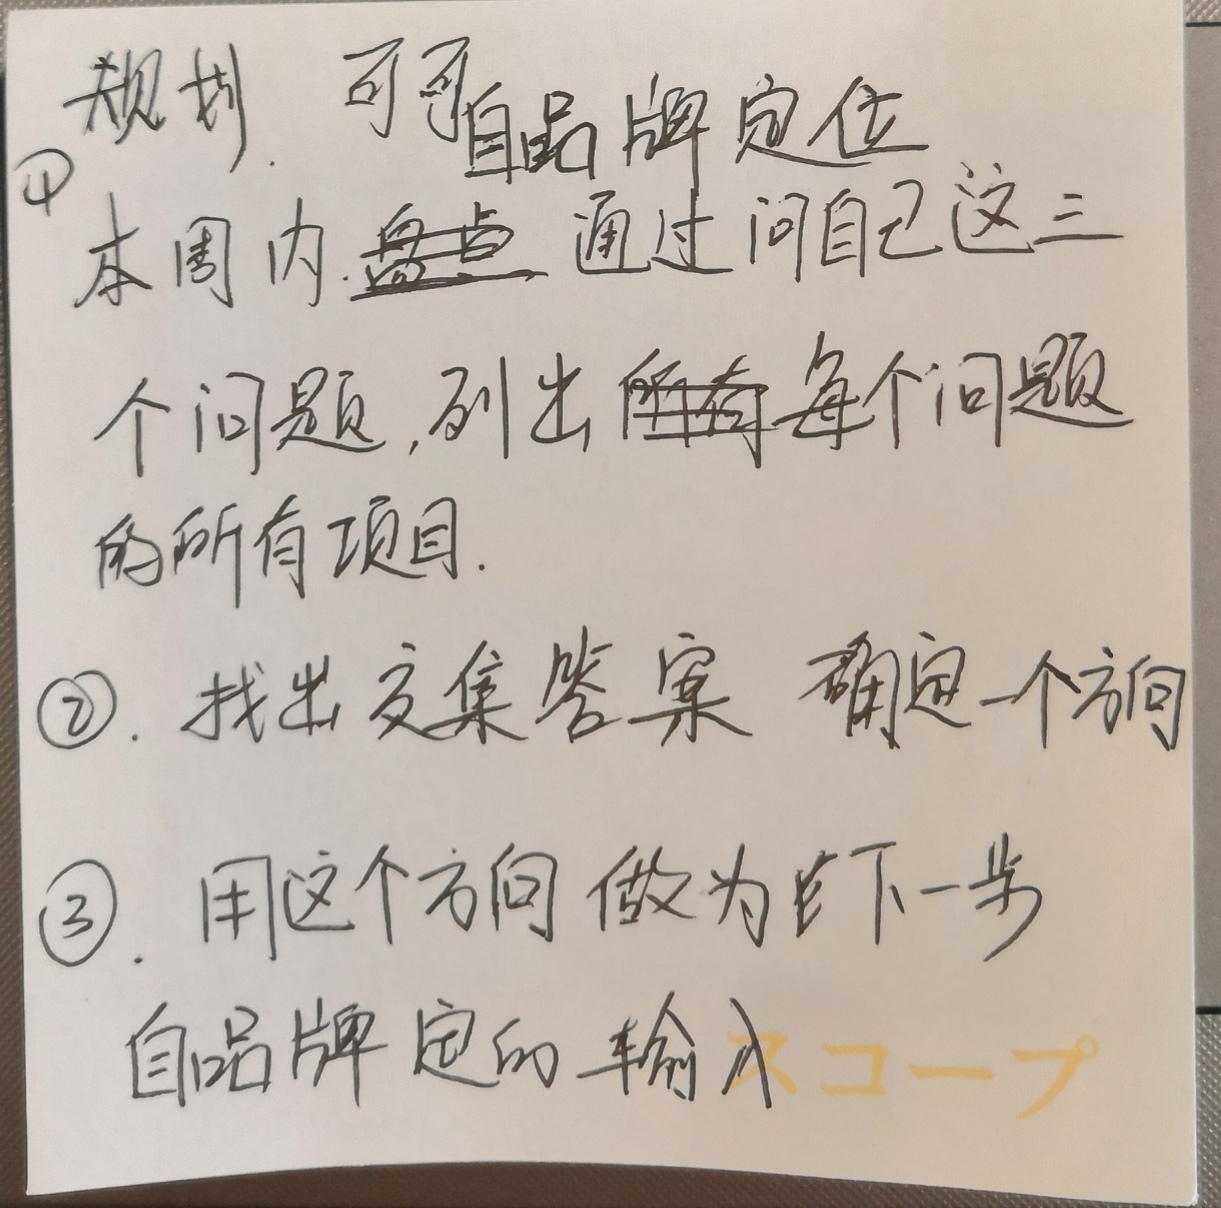 规划. 可可自品牌定位
① 本周内. 盘点 通过问自己这三
个问题, 列出 所有 每个问题
的所有项目.
②. 找出交集答案 确定一个方向
③. 用这个方向做为下一步
自品牌定的输入
スコープ